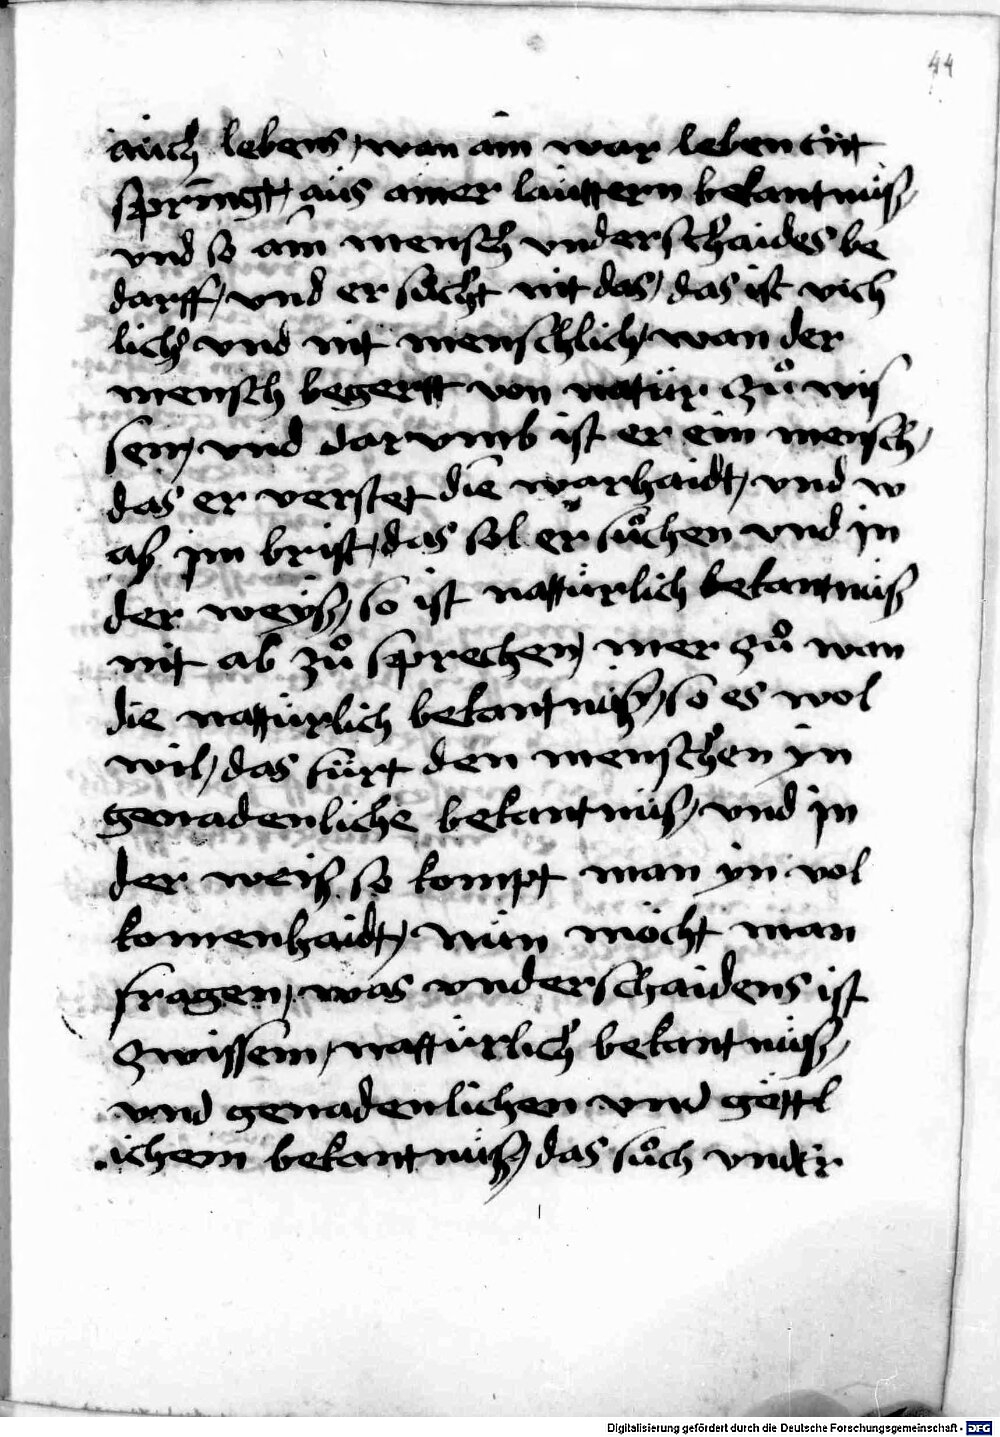 44
auch lebens, wan ain war leben ent
springt, aus ainer lauttern bekantnüß,
vnd so ain mensch vnderschaides be
darff, vnd er sůcht nit das, das ist vich
lich vnd nit menschlich, wan der
mensch begertt von natür zů wis
sen, vnd darvmb ist er ein mensch,
das er verstet die warhaidt, vnd w
aß jm brist, das sol er sůchen vnd in
der weyß, so ist nattürlich bekantnüß
nit ab zů sprechen, mer zů wan
die nattürlich bekantnüß, so es wol
wil, das fürt den menschen yn
genadenliche bekantnüß, vnd in
der weiß so kompt man yn vol
komenhaidt, nün möcht man
fragen, was vnderschaidens ist
zwissem, nattürlich bekantnüß,
vnd genadenlichen vnd göttl
ichem bekantnüß, das sůch vnder
Digitalisierung gefördert durch die Deutsche Forschungsgemeinschaft - DFG